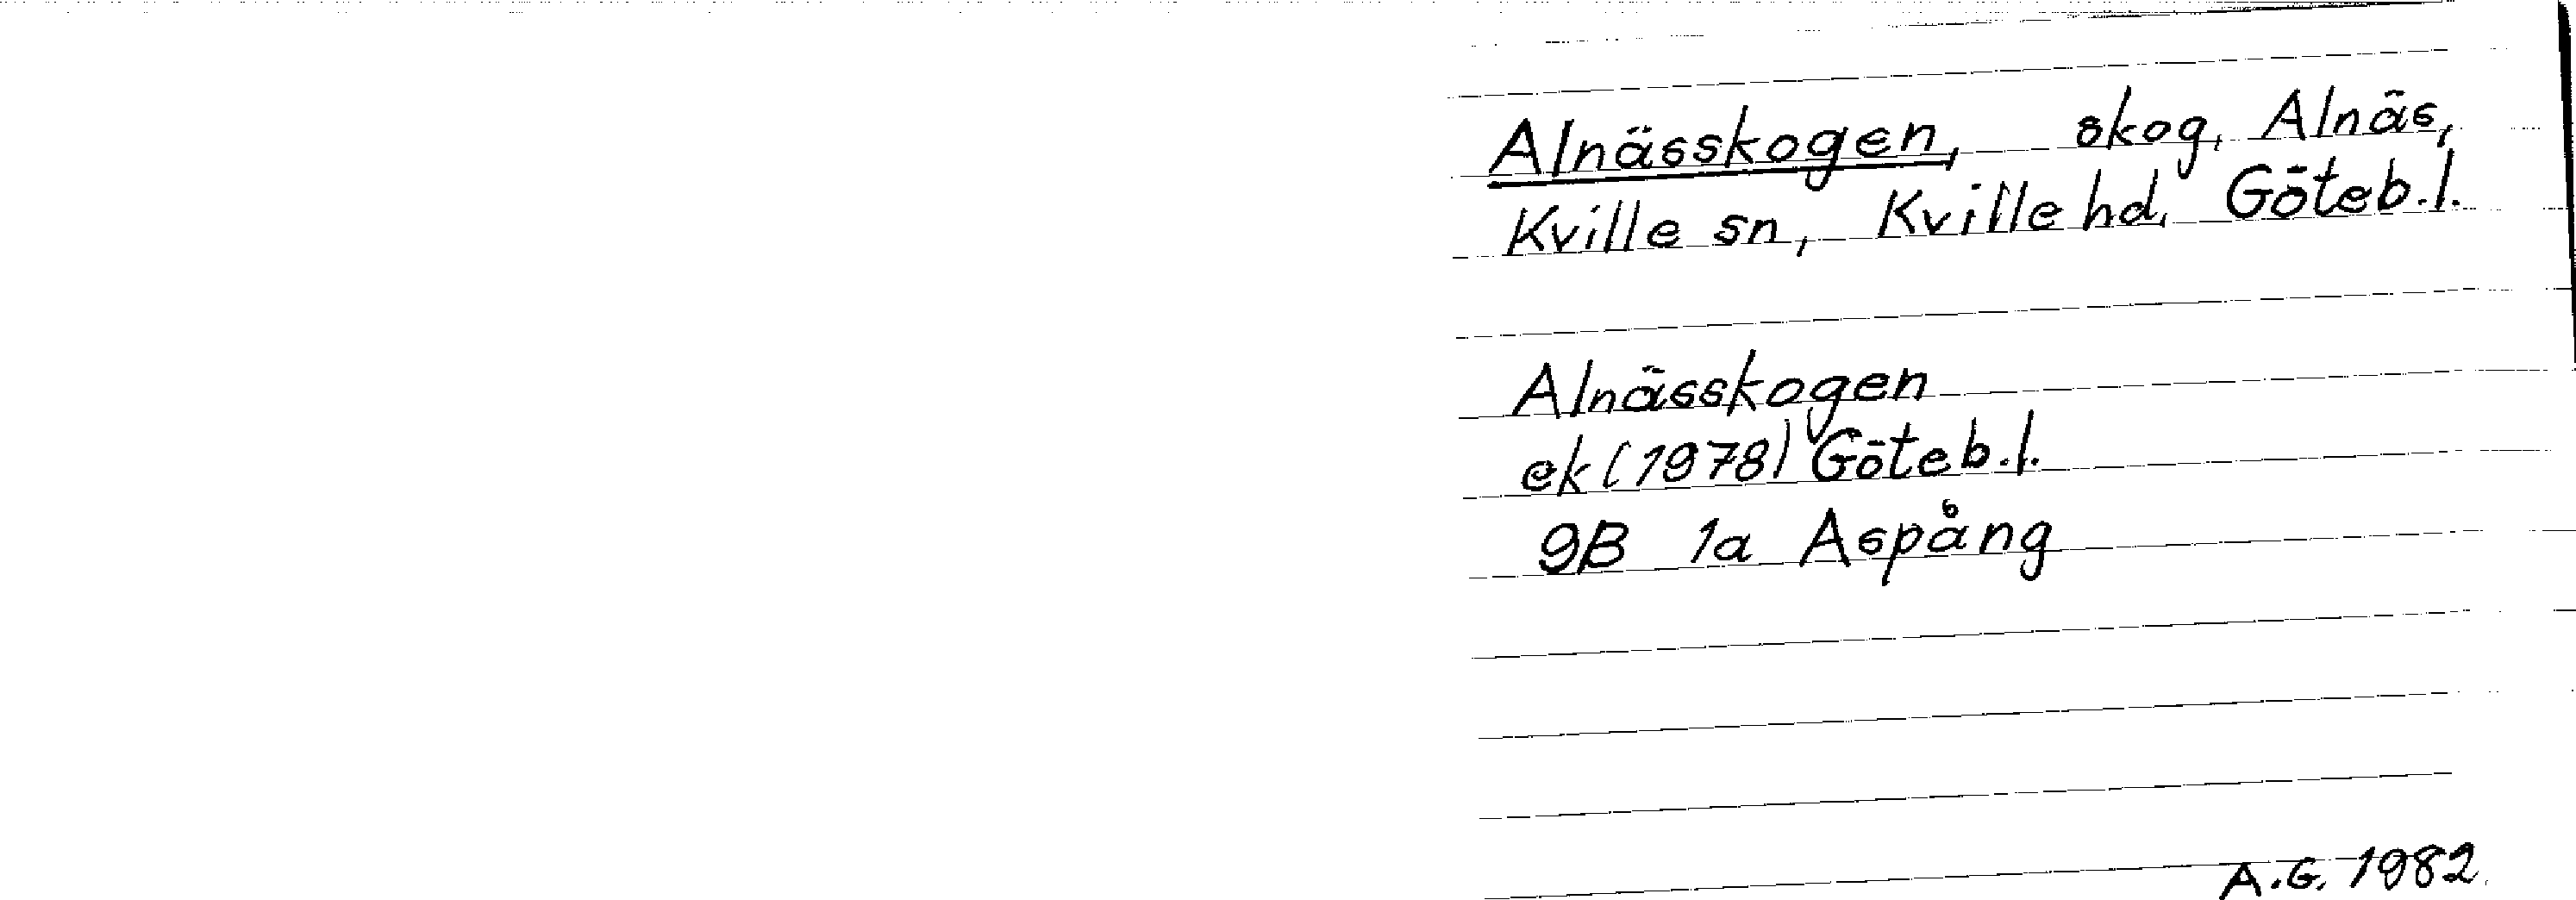 Alnässkogen, skog, Alnäs,
Kville sn, Kville hd, Göteb.l.
Alnässkogen
ek (1978) Göteb.l.
9B 1a Aspång
A.G. 1982.